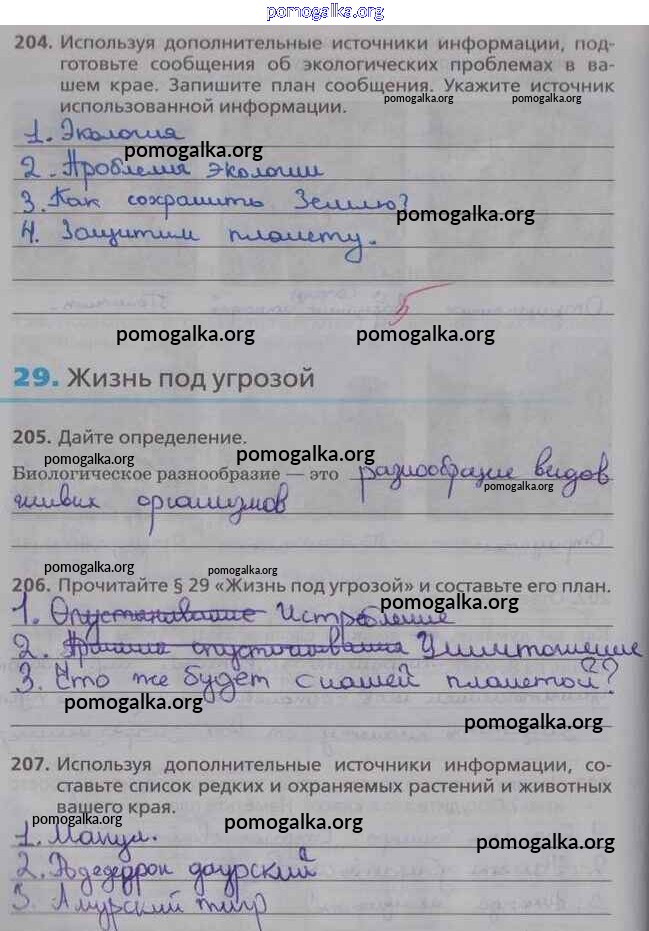 pomogalka.org
204. Используя дополнительные источники информации, под-
готовьте сообщения об экологических проблемах в ва-
шем крае. Запишите план сообщения. Укажите источник
использованной информации.
pomogalka.org pomogalka.org
1. Экология
pomogalka.org
2. Проблемия экологии
3. Как сохранить Землю?
pomogalka.org
4. Защитим планету.
5
pomogalka.org pomogalka.org
29. Жизнь под угрозой
205. Дайте определение.
pomogalka.org pomogalka.org
Биологическое разнообразие — это разнообразие видов
pomogalka.org
живых организмов
pomogalka.org pomogalka.org
206. Прочитайте § 29 «Жизнь под угрозой» и составьте его план.
pomogalka.org
1. Опустынивание Истребление
2. опустынивания Уничтожение
3. Что же будет с нашей планетой?
pomogalka.org
pomogalka.org
207. Используя дополнительные источники информации, со-
ставьте список редких и охраняемых растений и животных
вашего края.
pomogalka.org pomogalka.org
1. Манул.
pomogalka.org
2. даурский
3. Амурский тигр